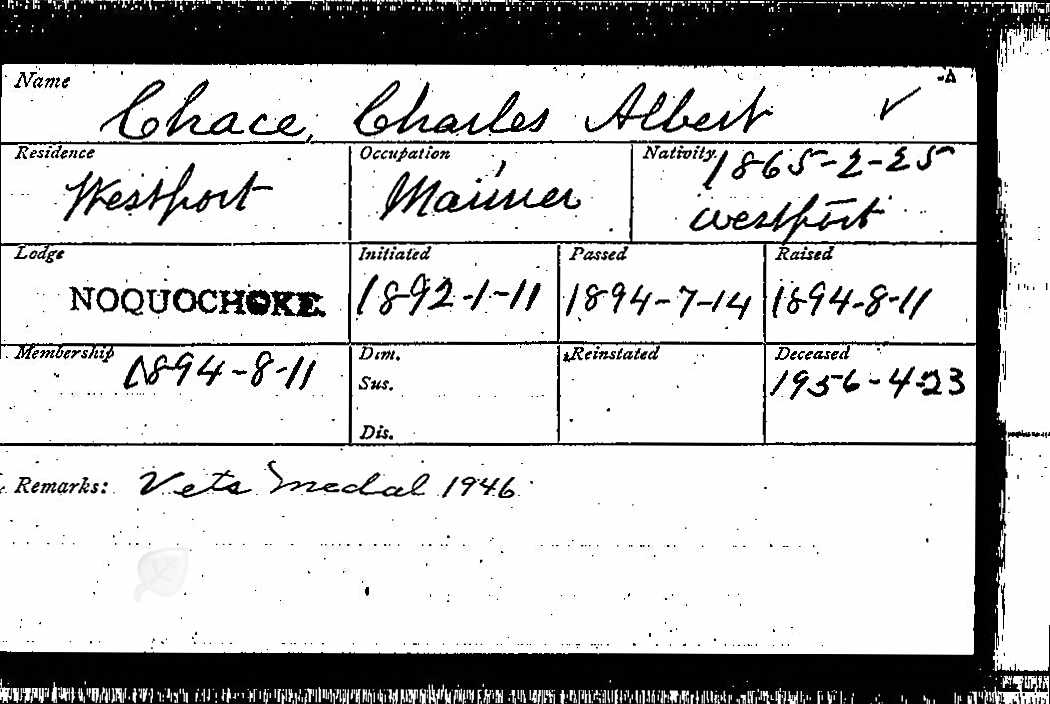 Name
Chace, Charles Albert ✓
Residence Occupation Nativity 1865-2-25
Westport Mariner Westport
Lodge Initiated Passed Raised
NOQUOCHOKE. 1892-1-11 1894-7-14 1894-8-11
Membership 1894-8-11 Dim. Reinstated Deceased
Sus. 1956-4-23
Dis.
Remarks: Vets Medal 1946